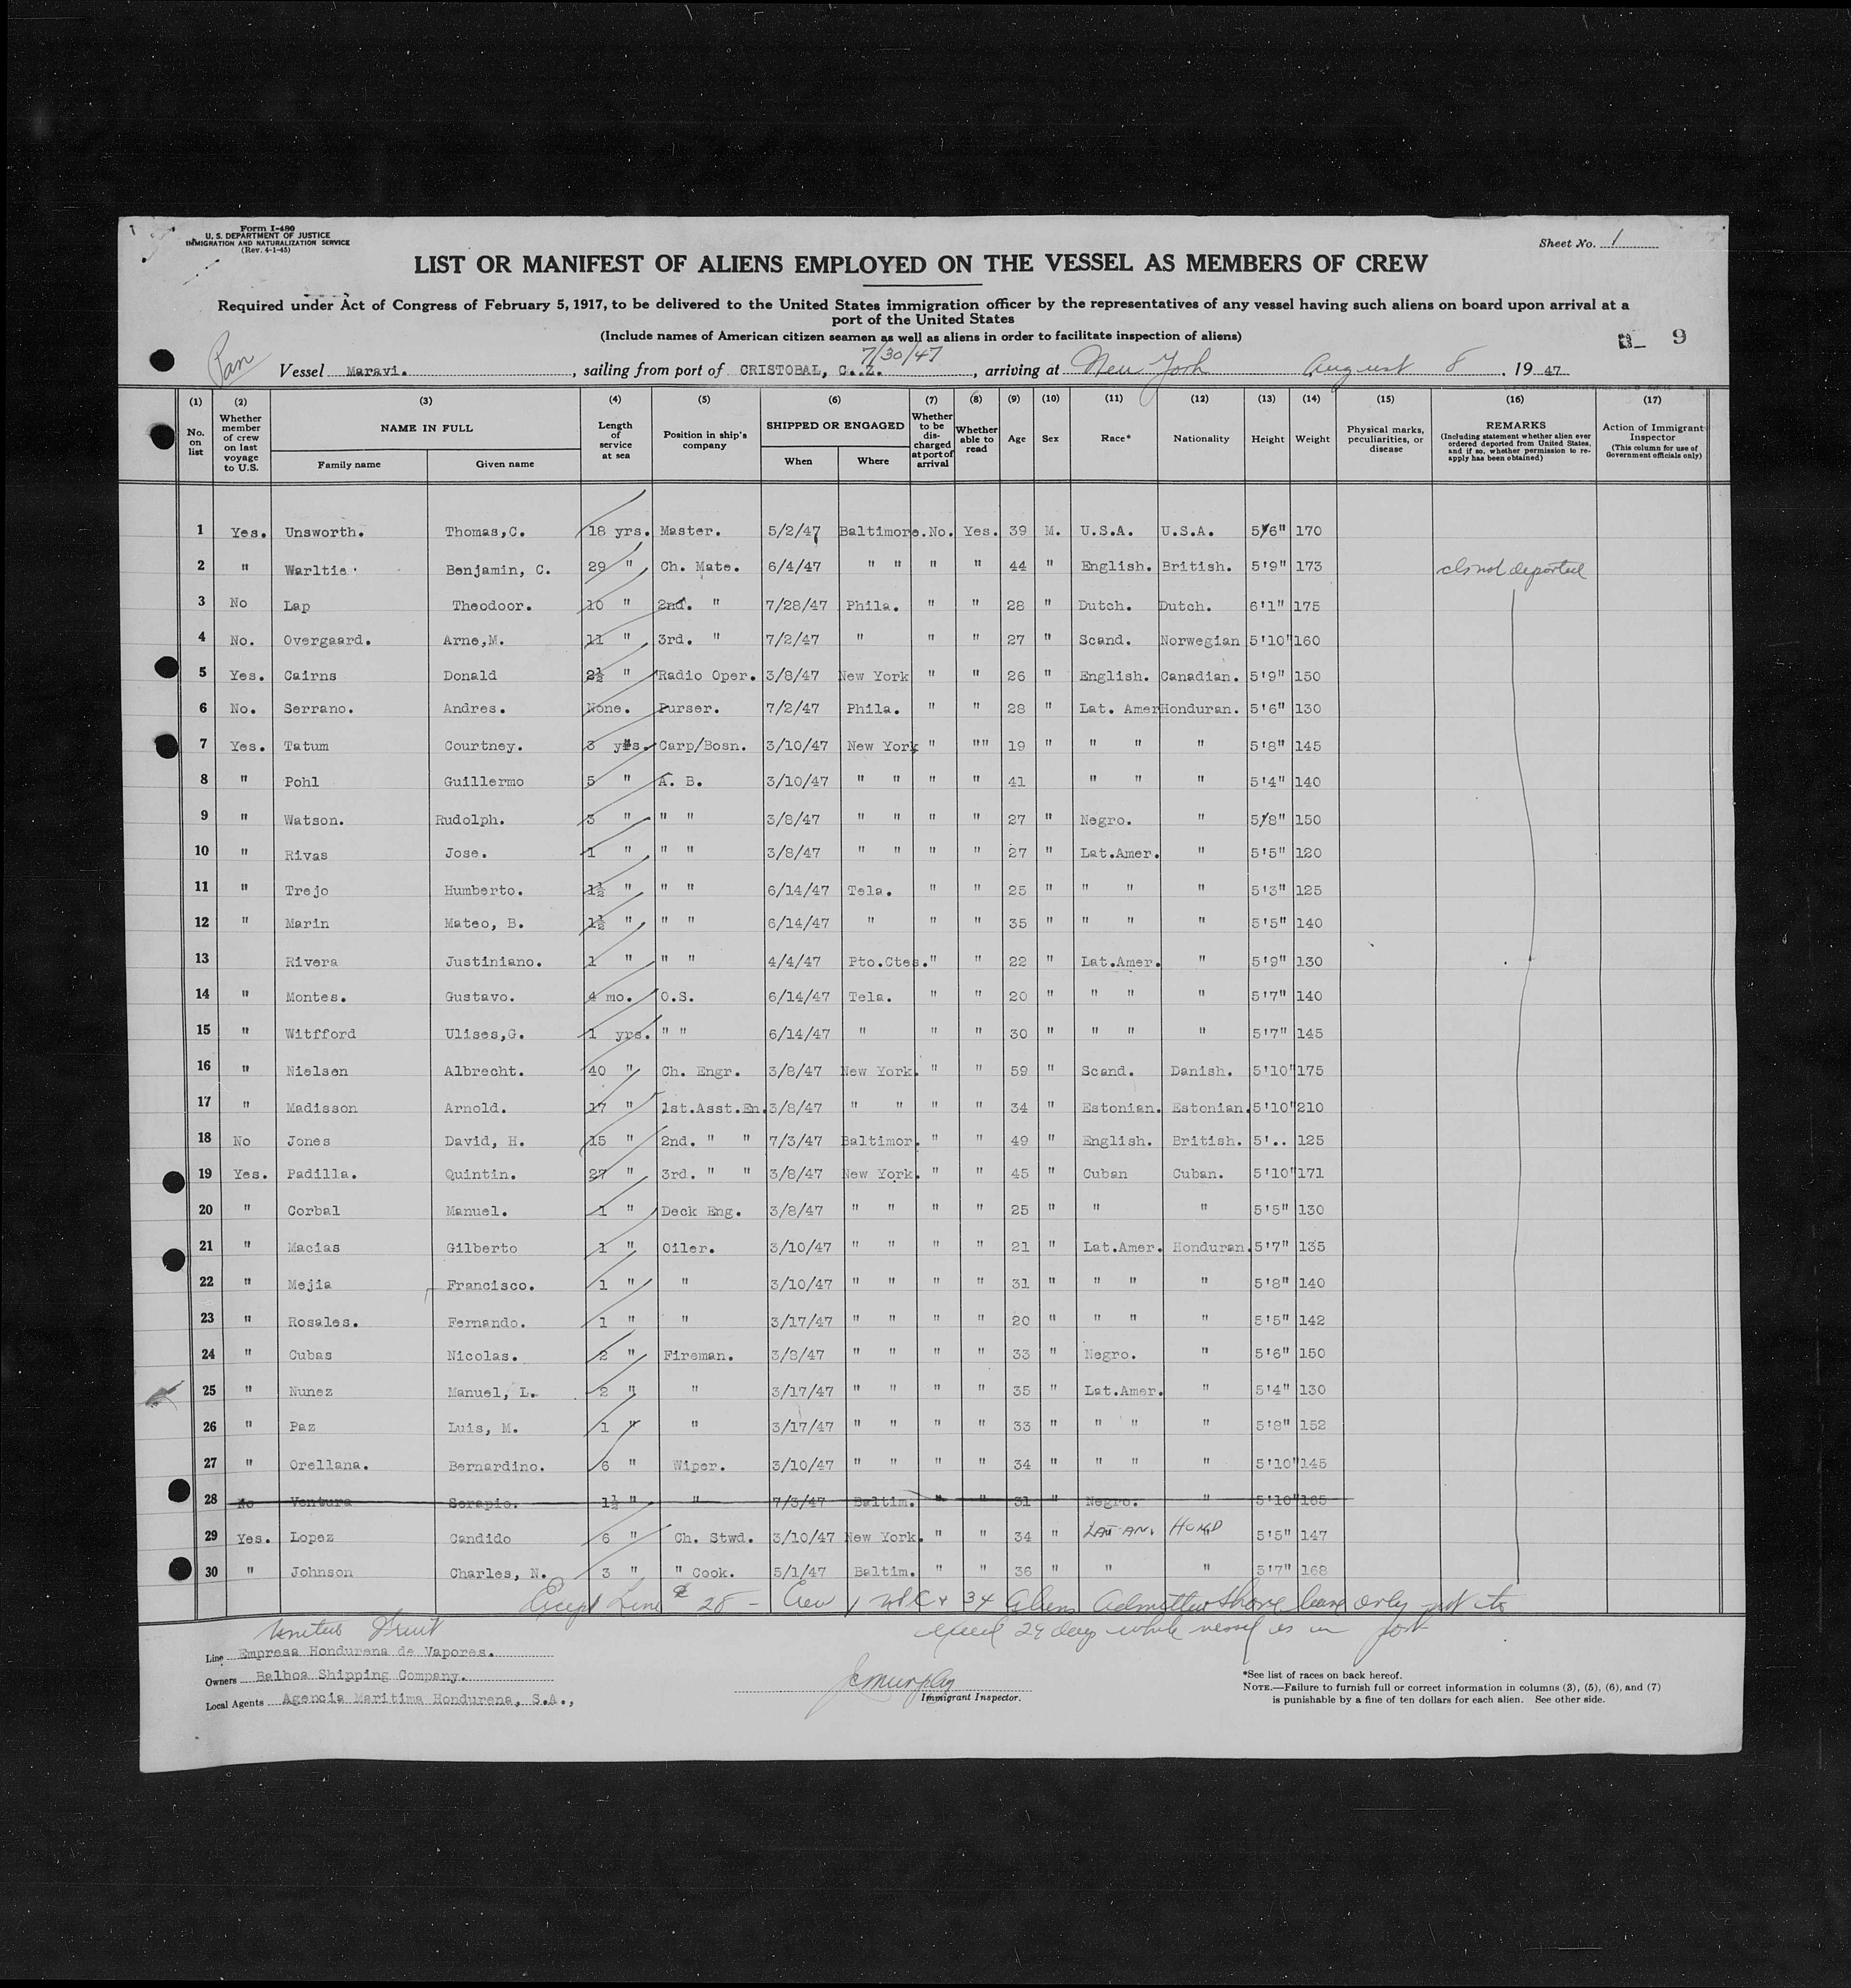 Form I-480
U. S. DEPARTMENT OF JUSTICE
IMMIGRATION AND NATURALIZATION SERVICE
(Rev. 4-1-45)
Sheet No. 1
LIST OR MANIFEST OF ALIENS EMPLOYED ON THE VESSEL AS MEMBERS OF CREW
Required under Act of Congress of February 5, 1917, to be delivered to the United States immigration officer by the representatives of any vessel having such aliens on board upon arrival at a
port of the United States
(Include names of American citizen seamen as well as aliens in order to facilitate inspection of aliens)
9
Pan
7/30/47
Vessel Maravi. , sailing from port of CRISTOBAL, C..Z. , arriving at New York August 8 , 19 47
(1) No. on list
(2) Whether member of crew on last voyage to U.S.
(3) NAME IN FULL Family name Given name
(4) Length of service at sea
(5) Position in ship's company
(6) SHIPPED OR ENGAGED When Where
(7) Whether to be discharged at port of arrival
(8) Whether able to read
(9) Age
(10) Sex
(11) Race*
(12) Nationality
(13) Height
(14) Weight
(15) Physical marks, peculiarities, or disease
(16) REMARKS (Including statement whether alien ever ordered deported from United States, and if so, whether permission to re-apply has been obtained)
(17) Action of Immigrant Inspector (This column for use of Government officials only)
1 Yes. Unsworth. Thomas,C. 18 yrs. Master. 5/2/47 Baltimore. No. Yes. 39 M. U.S.A. U.S.A. 5'6" 170
2 " Warltie Benjamin, C. 29 " Ch. Mate. 6/4/47 " " " " 44 " English. British. 5'9" 173 not deported
3 No Lap Theodoor. 10 " 2nd. " 7/28/47 Phila. " " 28 " Dutch. Dutch. 6'1" 175
4 No. Overgaard. Arne,M. 11 " 3rd. " 7/2/47 " " " 27 " Scand. Norwegian 5'10" 160
5 Yes. Cairns Donald 2½ " Radio Oper. 3/8/47 New York " " 26 " English. Canadian. 5'9" 150
6 No. Serrano. Andres. None. Purser. 7/2/47 Phila. " " 28 " Lat. Amer Honduran. 5'6" 130
7 Yes. Tatum Courtney. 3 yrs. Carp/Bosn. 3/10/47 New York " "" 19 " " " " 5'8" 145
8 " Pohl Guillermo 5 " A. B. 3/10/47 " " " " 41 " " " 5'4" 140
9 " Watson. Rudolph. 3 " " " 3/8/47 " " " " 27 " Negro. " 5'8" 150
10 " Rivas Jose. 1 " " " 3/8/47 " " " " 27 " Lat.Amer. " 5'5" 120
11 " Trejo Humberto. 1½ " " " 6/14/47 Tela. " " 25 " " " " 5'3" 125
12 " Marin Mateo, B. 1½ " " " 6/14/47 " " " 35 " " " " 5'5" 140
13 Rivera Justiniano. 1 " " " 4/4/47 Pto.Ctes. " " 22 " Lat.Amer. " 5'9" 130
14 " Montes. Gustavo. 4 mo. O.S. 6/14/47 Tela. " " 20 " " " " 5'7" 140
15 " Witfford Ulises,G. 1 yrs. " " 6/14/47 " " " 30 " " " " 5'7" 145
16 " Nielsen Albrecht. 40 " Ch. Engr. 3/8/47 New York. " " 59 " Scand. Danish. 5'10" 175
17 " Madisson Arnold. 17 " 1st.Asst.En. 3/8/47 " " " " 34 " Estonian. Estonian. 5'10" 210
18 No Jones David, H. 15 " 2nd. " " 7/3/47 Baltimor. " " 49 " English. British. 5'.. 125
19 Yes. Padilla. Quintin. 27 " 3rd. " " 3/8/47 New York. " " 45 " Cuban Cuban. 5'10" 171
20 " Corbal Manuel. 1 " Deck Eng. 3/8/47 " " " " 25 " " " 5'5" 130
21 " Macias Gilberto 1 " Oiler. 3/10/47 " " " " 21 " Lat.Amer. Honduran. 5'7" 135
22 " Mejia Francisco. 1 " " 3/10/47 " " " " 31 " " " " 5'8" 140
23 " Rosales. Fernando. 1 " " 3/17/47 " " " " 20 " " " " 5'5" 142
24 " Cubas Nicolas. 2 " Fireman. 3/8/47 " " " " 33 " Negro. " 5'6" 150
25 " Nunez Manuel, L. 2 " " 3/17/47 " " " " 35 " Lat.Amer. " 5'4" 130
26 " Paz Luis, M. 1 " " 3/17/47 " " " " 33 " " " " 5'8" 152
27 " Orellana. Bernardino. 6 " Wiper. 3/10/47 " " " " 34 " " " " 5'10" 145
28 No Ventura Serapio. 1½ " " 7/3/47 Baltim. " " 31 " Negro. " 5'10" 165
29 Yes. Lopez Candido 6 " Ch. Stwd. 3/10/47 New York. " " 34 " LAT AM. HOND 5'5" 147
30 " Johnson Charles, N. 3 " " Cook. 5/1/47 Baltim. " " 36 " " " 5'7" 168
Except Line # 28 - Crew 1 + 34 Aliens admitted shore leave only not to
exceed 29 days while vessel is in port
United Fruit
Line Empresa Hondurena de Vapores.
Owners Balboa Shipping Company.
Local Agents Agencia Maritima Hondurena, S.A.,
JC Murphy
Immigrant Inspector.
*See list of races on back hereof.
NOTE.—Failure to furnish full or correct information in columns (3), (5), (6), and (7)
is punishable by a fine of ten dollars for each alien. See other side.